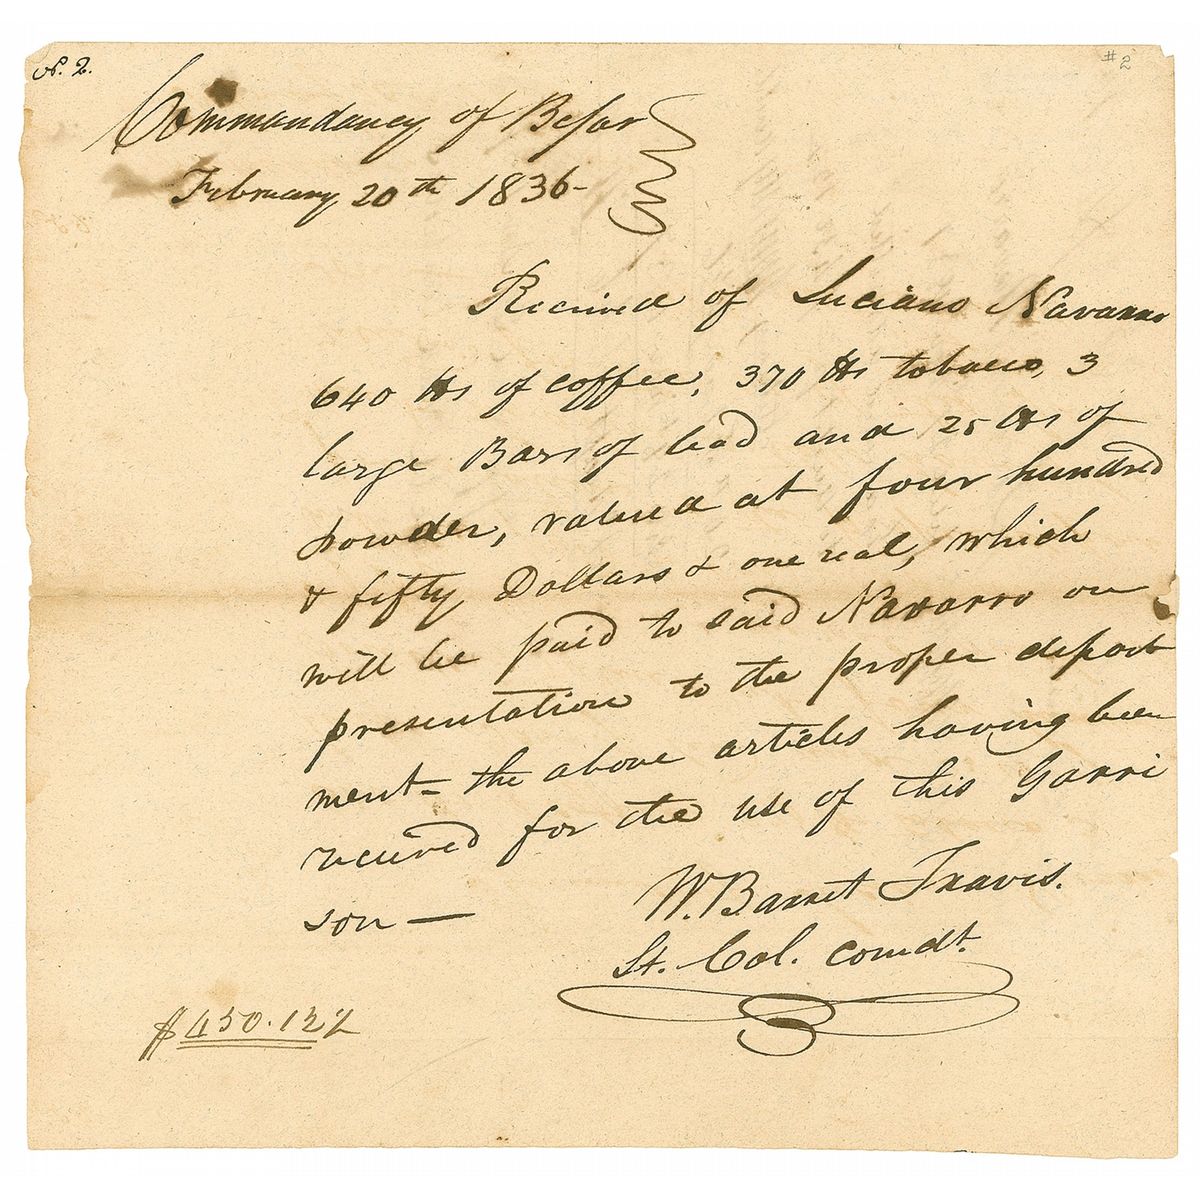 No. 2.
#2
Commandancy of Bejar
February 20th 1836-
Received of Luciano Navarro
640 lbs of coffee, 370 lbs tobacco, 3
large Bars of lead and 25 lbs of
powder, valued at four hundred
& fifty Dollars & one real, which
will be paid to said Navarro on
presentation to the proper depart
ment- the above articles having been
received for the use of this Garri
son —
W. Barret Travis.
Lt. Col. comdt.
$450.12½